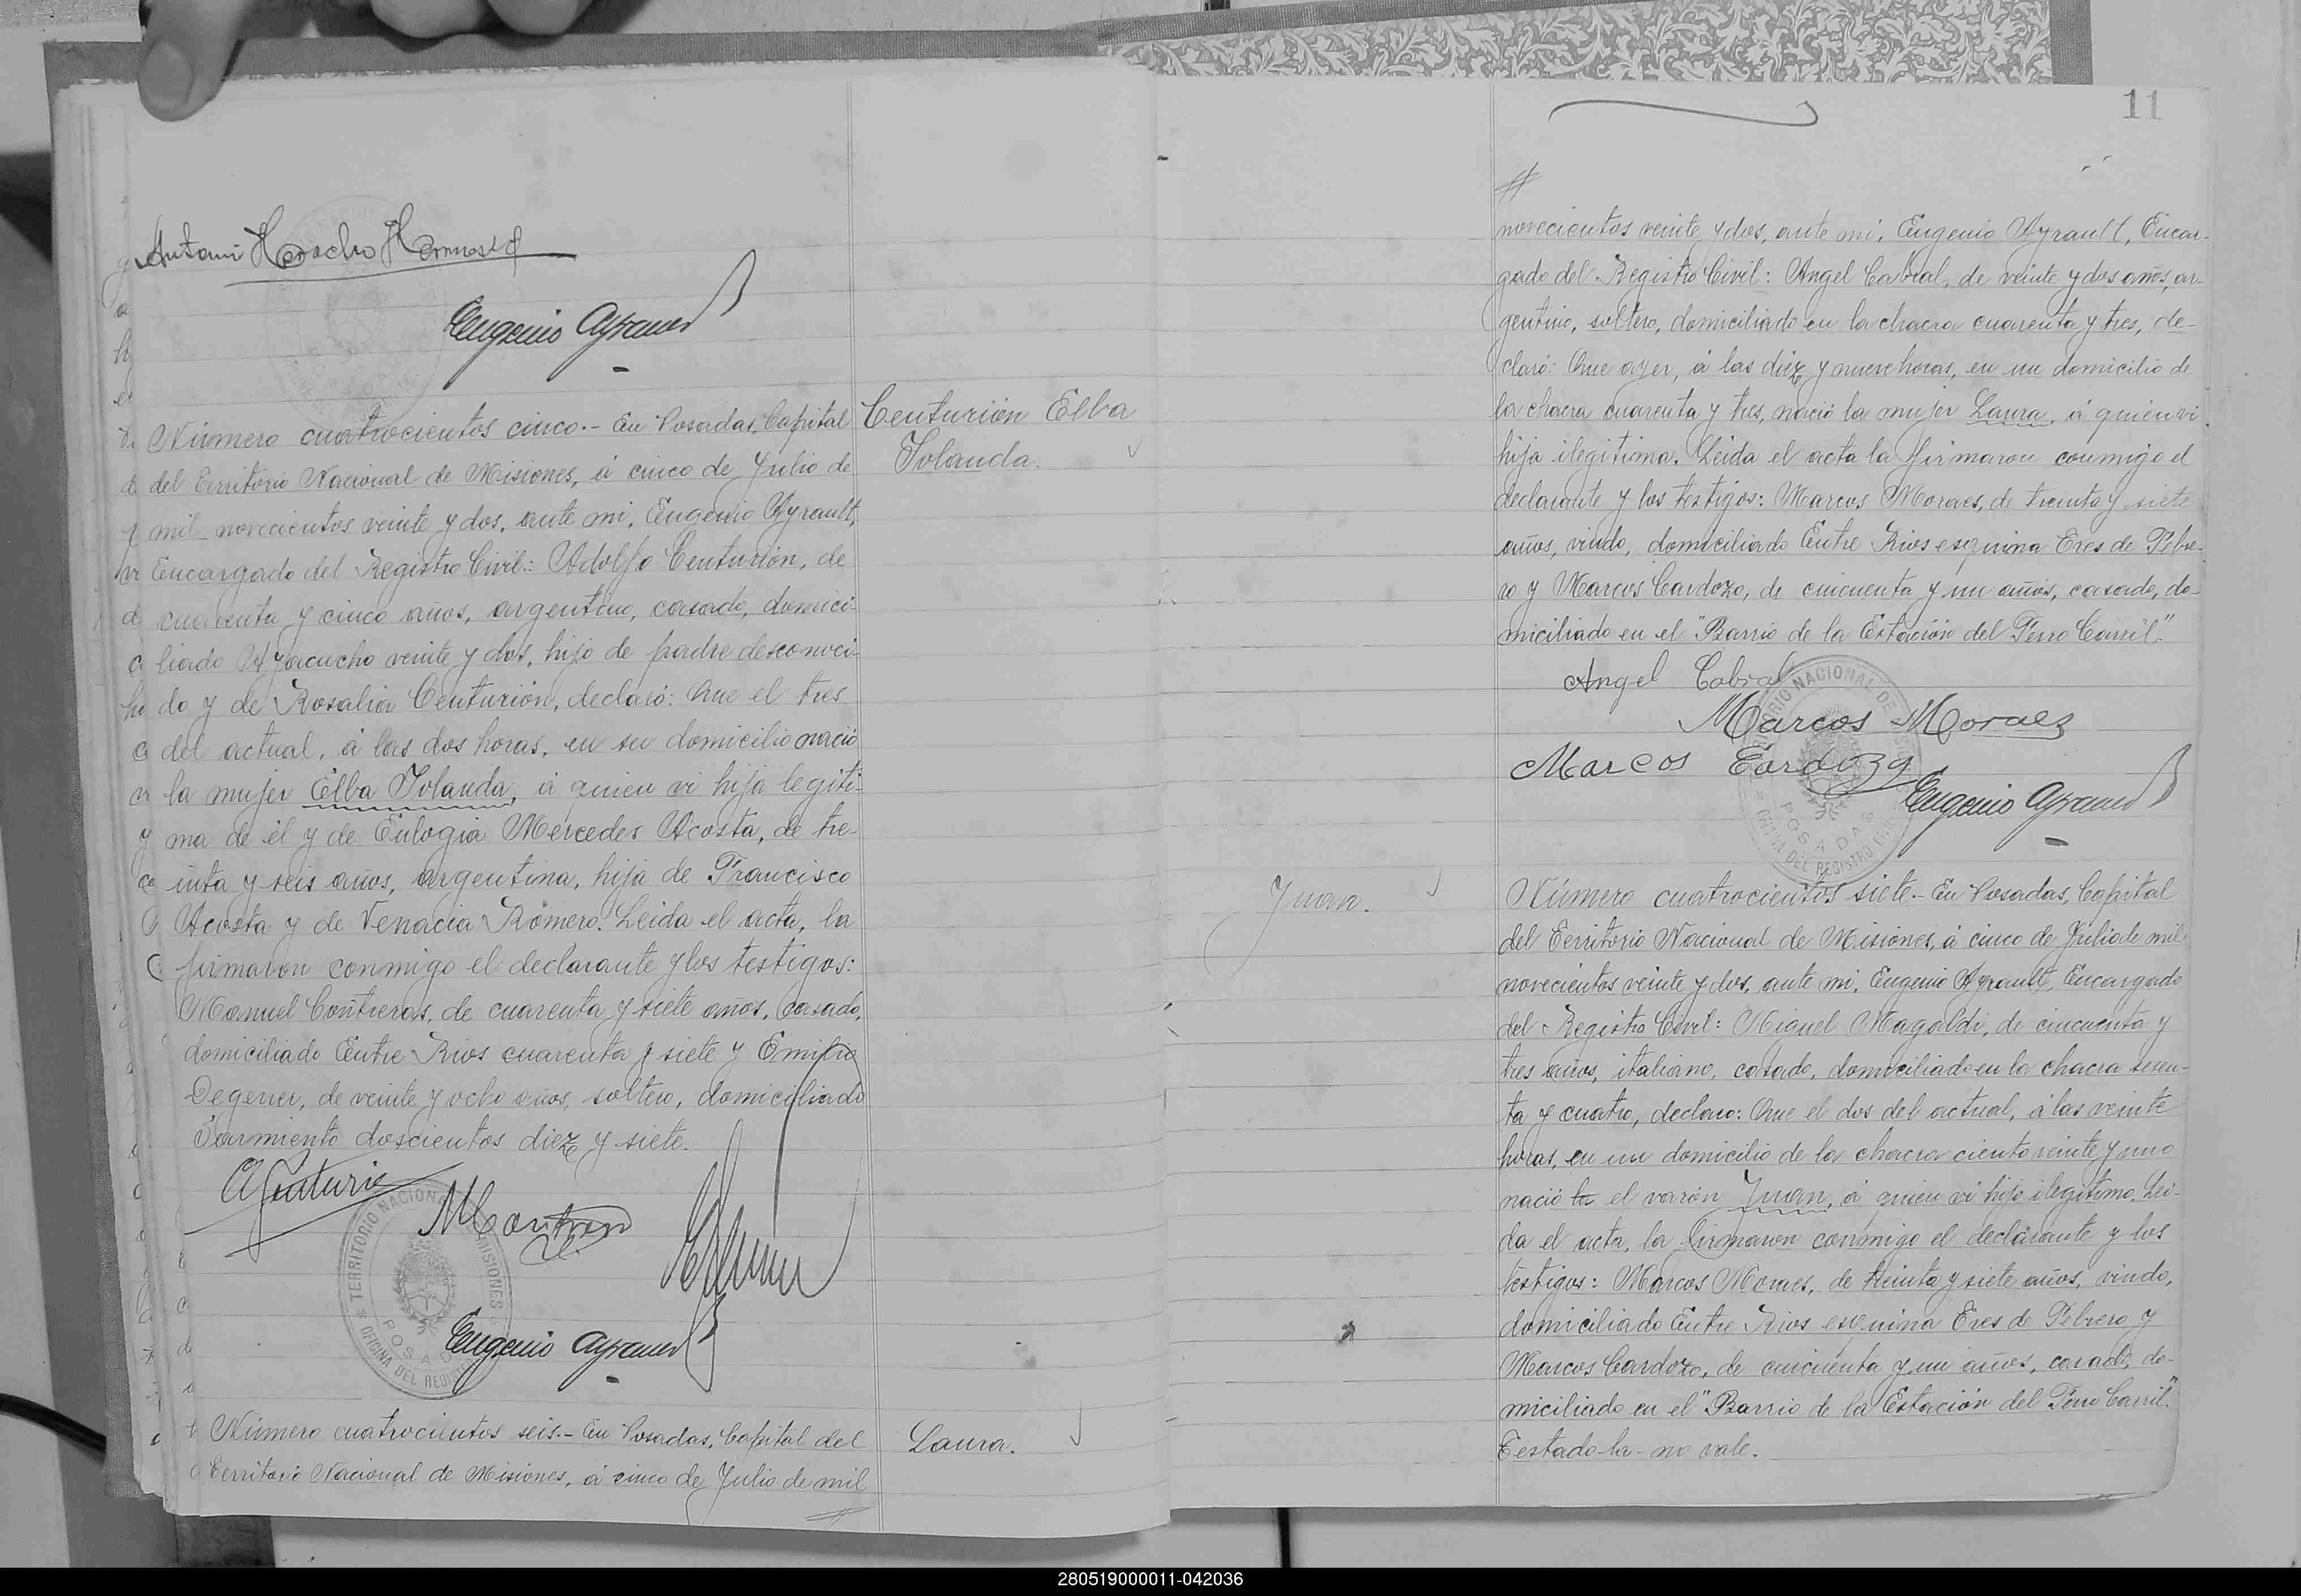 Eugenio Ayrault
Número cuatrocientos cinco.- En Posadas, Capital
del Territorio Nacional de Misiones, á cinco de Julio de
mil novecientos veinte y dos, ante mi, Eugenio Ayrault,
Encargado del Registro Civil: Adolfo Centurión, de
cuarenta y cinco años, argentino, casado, domici-
liado Ayacucho veinte y dos, hijo de padre desconoci-
do y de Rosalia Centurión, declaró: Que el tres
del actual, á las dos horas, en su domicilio nació
la mujer Elba Yolanda, á quien vi hija legiti-
ma de él y de Eulogia Mercedes Acosta, de tre-
inta y seis años, argentina, hija de Francisco
Acosta y de Venacia Romero. Leida el acta, la
firmaron conmigo el declarante y los testigos:
Manuel Contreras, de cuarenta y siete años, casado,
domiciliado Entre Rios cuarenta y siete y Emilio
Degener, de veinte y ocho años, soltero, domiciliado
Sarmiento doscientos diez y siete.
TERRITORIO NACIONAL MISIONES
POSADAS
OFICINA DEL REGISTRO
Eugenio Ayrault
Número cuatrocientos seis.- En Posadas, Capital del
Territorio Nacional de Misiones, á cinco de Julio de mil
Centurión Elba
Yolanda.
Laura.
11
novecientos veinte y dos, ante mi, Eugenio Ayrault, Encar-
gado del Registro Civil: Angel Cabral, de veinte y dos años, ar-
gentino, soltero, domiciliado en la chacra cuarenta y tres, de-
claró: Que ayer, á las diez y nueve horas, en un domicilio de
la chacra cuarenta y tres, nació la mujer Laura, á quien vi
hija ilegitima. Leida el acta la firmaron conmigo el
declarante y los testigos: Marcos Moraes, de treinta y siete
años, viudo, domiciliado Entre Rios esquina Tres de Febre-
ro y Marcos Cardozo, de cincuenta y un años, casado, do-
miciliado en el "Barrio de la Estación del Ferro Carril."
Angel Cabral
Marcos Moraes
Marcos Cardozo
Eugenio Ayrault
TERRITORIO NACIONAL DE
POSADAS
OFICINA DEL REGISTRO CIVIL
Juan.
Número cuatrocientos siete.- En Posadas, Capital
del Territorio Nacional de Misiones, á cinco de Julio de mil
novecientos veinte y dos, ante mi, Eugenio Ayrault, Encargado
del Registro Civil: Miguel Magaldi, de cincuenta y
tres años, italiano, casado, domiciliado en la chacra sesen-
ta y cuatro, declaro: Que el dos del actual, á las veinte
horas, en un domicilio de la chacra ciento veinte y uno
nació la el varón Juan, á quien vi hijo ilegitimo. Lei-
da el acta, la firmaron conmigo el declarante y los
testigos: Marcos Moraes, de treinta y siete años, viudo,
domiciliado Entre Rios esquina Tres de Febrero y
Marcos Cardozo, de cincuenta y un años, casado, do-
miciliado en el "Barrio de la Estación del Ferro Carril."
Testado-la-no vale.
280519000011-042036